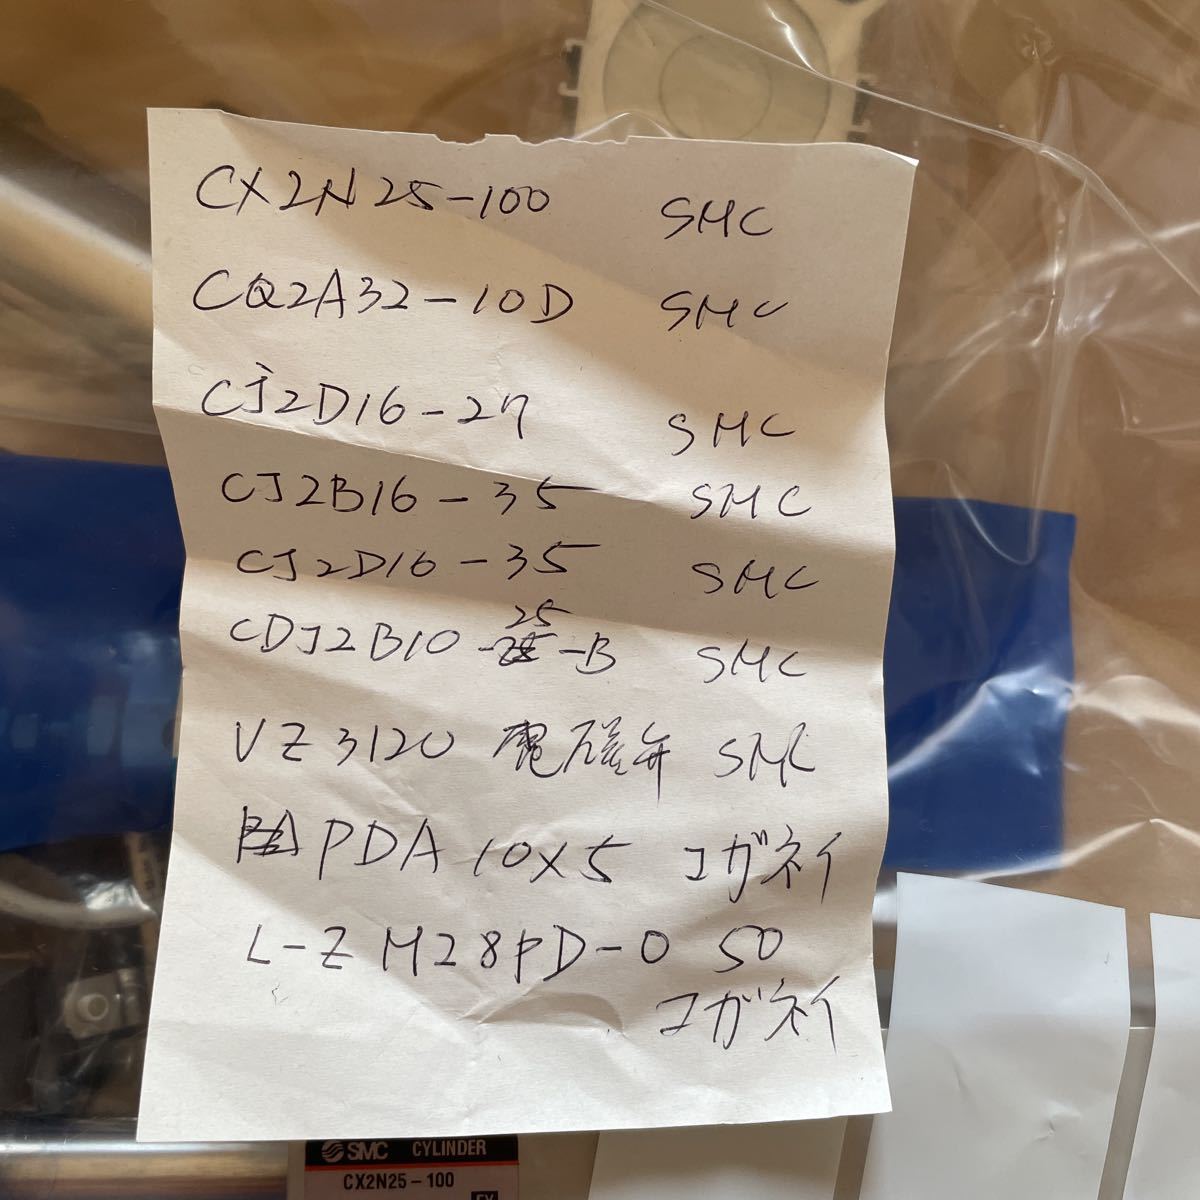 CX2N25-100 SMC
CQ2A32-10D SMC
CJ2D16-27 SMC
CJ2B16-35 SMC
CJ2D16-35 SMC
25
CDJ2B10--B SMC
VZ3120 電磁弁 SMC
PDA 10×5 コガネイ
L-Z M28PD-0 50
コガネイ
SMC CYLINDER
CX2N25-100